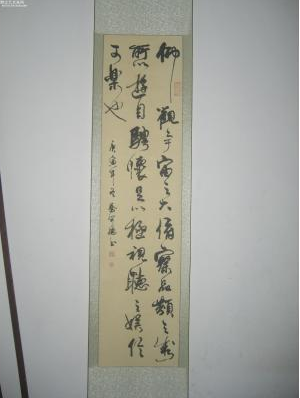 仰觀宇宙之大俯察品類之盛
所以遊目騁懷足以極視聽之娛信
可樂也
庚寅年